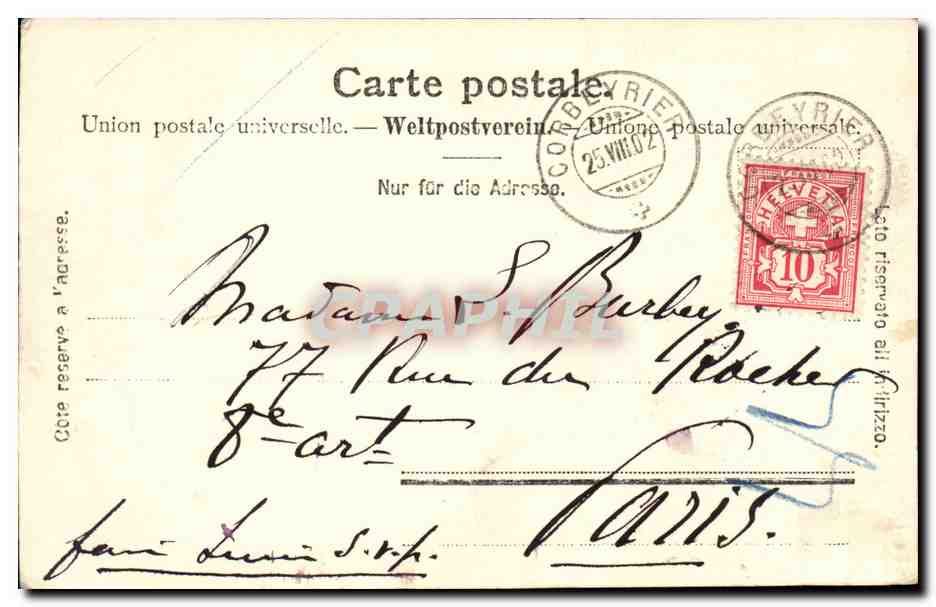 Carte postale.
Union postale universelle. — Weltpostverein. — Unione postale universale.
Nur für die Adresse.
CORBEYRIER
25.VIII.02
CORBEYRIER
HELVETIA
FRANCO
10
Côté réservé à l'adresse.
Lato riservato all'indirizzo.
Madame S. Burbey
77 Rue du Rocher
8e art
Paris.
faire suivre s.v.p.
CRAPHIL